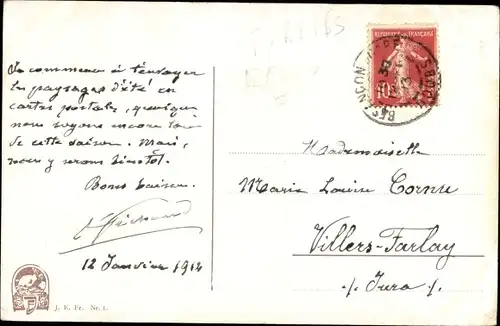 Je commence à t'envoyer
les paysages d'été en
cartes postales, quoique
nous soyons encore loin
de cette saison. Mais,
nous y serons bientôt.
Bons baisers.
12 Janvier 1912
J. E. Fr. Nr. 1.
REPUBLIQUE FRANÇAISE
10
BESANÇON
DOUBS
Mademoiselle
Marie Louise Cornu
Villers-Farlay
Jura